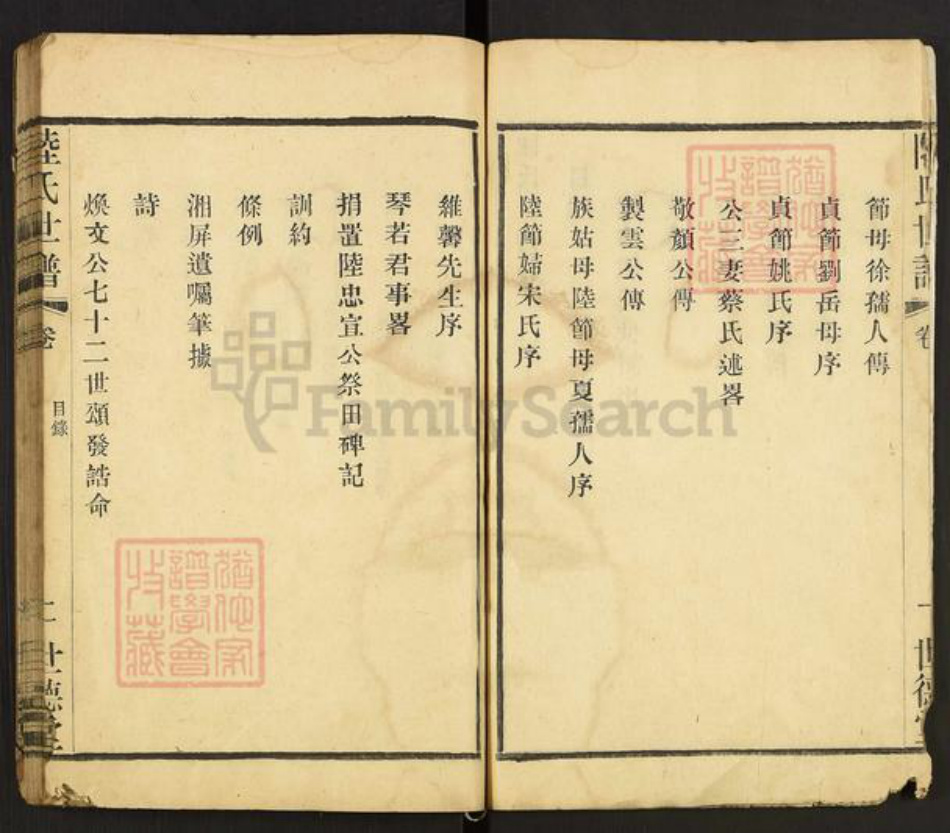 節母徐孺人傳
貞節劉岳母序
貞節姚氏序
公三妻蔡氏述畧
敬顏公傳
製雲公傳
族姑母陸節母夏孺人序
陸節婦宋氏序
世譜
卷
一
世德堂
維馨先生序
琴若君事畧
捐置陸忠宣公祭田碑記
訓約
條例
湘屏遺囑筆據
詩
煥文公七十二世頌發誥命
陸氏世譜
卷
目錄
二
世德堂
譜學會
收藏
FamilySearch